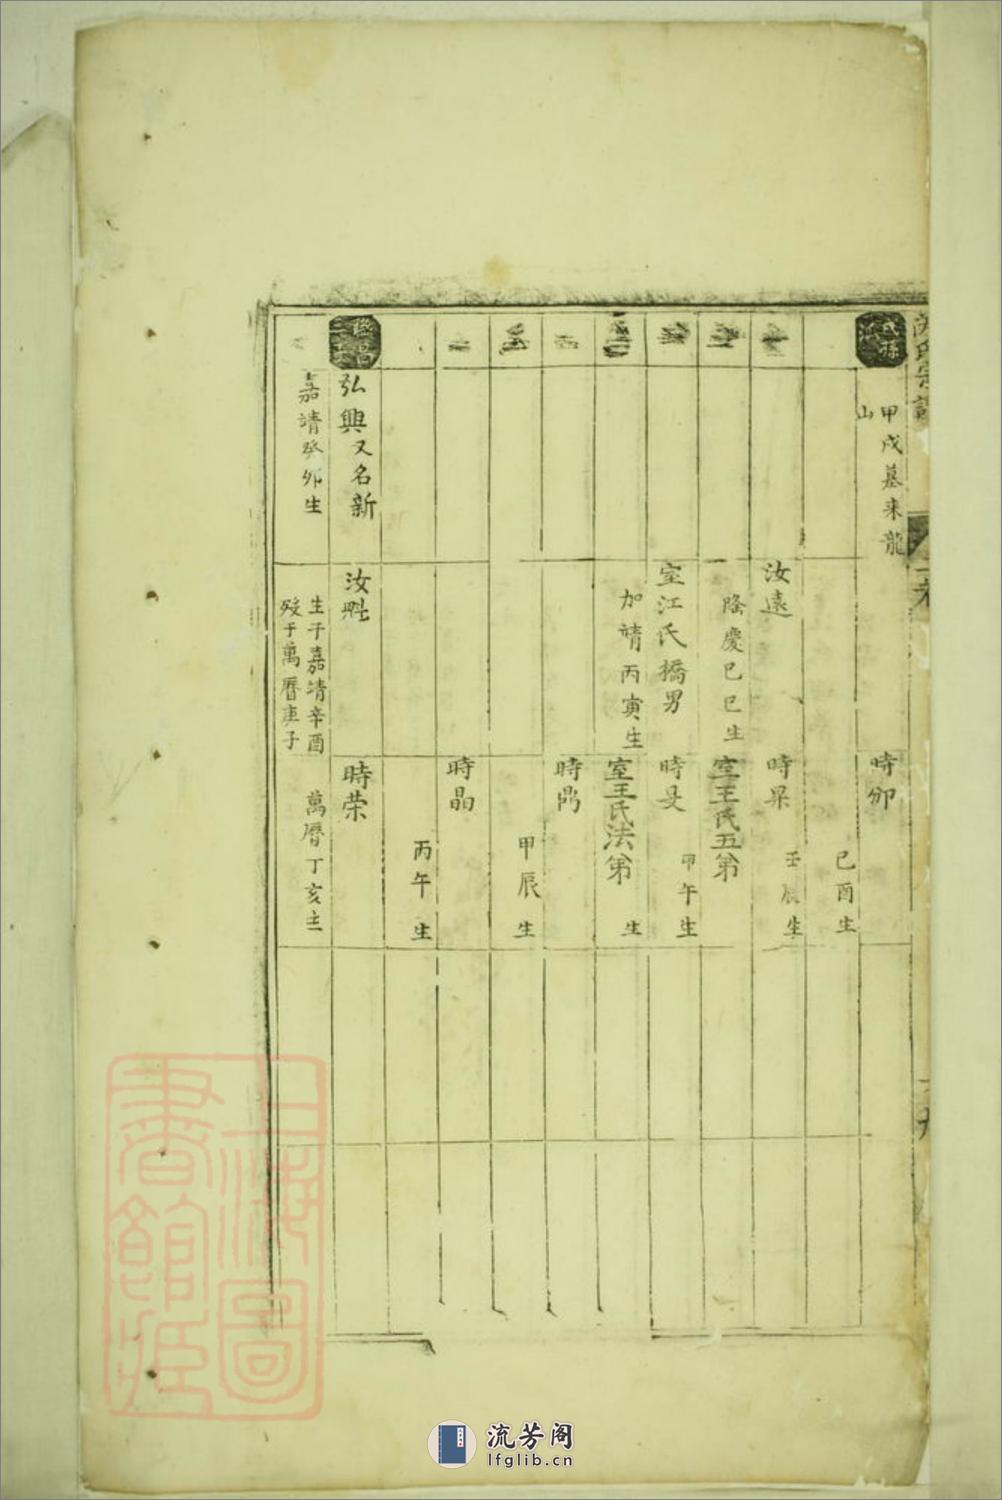 甲戌墓来龍
山
時卯
己酉生
汝遠
時杲
壬辰生
隆慶己巳生
室王氏五第
室江氏擕男
時旻
甲午生
加靖丙寅生
室王氏法第
生
時鼎
甲辰生
時晶
丙午生
弘興又名新
汝魁
時荣
嘉靖癸卯生
生于嘉靖辛酉
殁于萬曆庚子
萬曆丁亥生
上海圖
書館藏
流芳阁
lfglib.cn